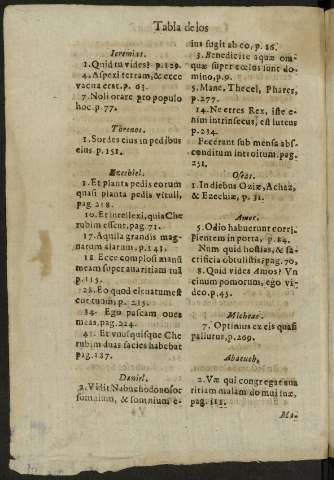 Tabla de los
Ieremias.
1. Quid tu vides? p. 129.
4. Aspexi terram, & ecce
vacua erat. p. 63.
7. Noli orare pro populo
hoc. p. 77.
Threnos.
1. Sordes eius in pedibus
eius p. 151.
Ezechiel.
1. Et planta pedis eorum
quasi planta pedis vituli,
pag.
10. Et intellexi, quia Che
rubim essent, pag. 71.
17. Aquila grandis mag-
narum alarum, p. 141.
18 Ecce complosi manũ
meam super auaritiam tuã
p. 115.
28. Eo quod eleuatum est
cor tuum, p. 215.
34. Ego pascam oues
meas, pag. 224.
41. Et vnusquisque Che
rubim duas facies habebat
pag. 187.
Daniel.
2. Vidit Nabuchodonosor
somnium, & somnium e-
ius fugit ab eo, p. 16.
3. Benedicite aquæ om-
quæ super cœlos sunt do-
mino, p. 9.
5. Mane, Thecel, Phares,
p. 277.
14. Ne erres Rex, iste e-
nim intrinsecus, est luteus
p. 234.
Fecerant sub mensa abs-
conditum introitum. pag.
251.
Oseas.
1. In diebus Oziæ, Achaz,
& Ezechiæ, p. 31.
Amos.
5. Odio habuerunt corri-
pientem in porta, p. 84.
Num quid hostias, & sa-
crificia obtulistis, pag. 70,
8. Quid vides Amos? Vn
cinum pomorum, ego vi-
deo. p. 45.
Micheas.
7. Optimus ex eis quasi
paliurus, p. 209.
Abacuch,
2. Væ qui congregat aua
ritiam malam domui suæ,
pag. 115.
Ma-